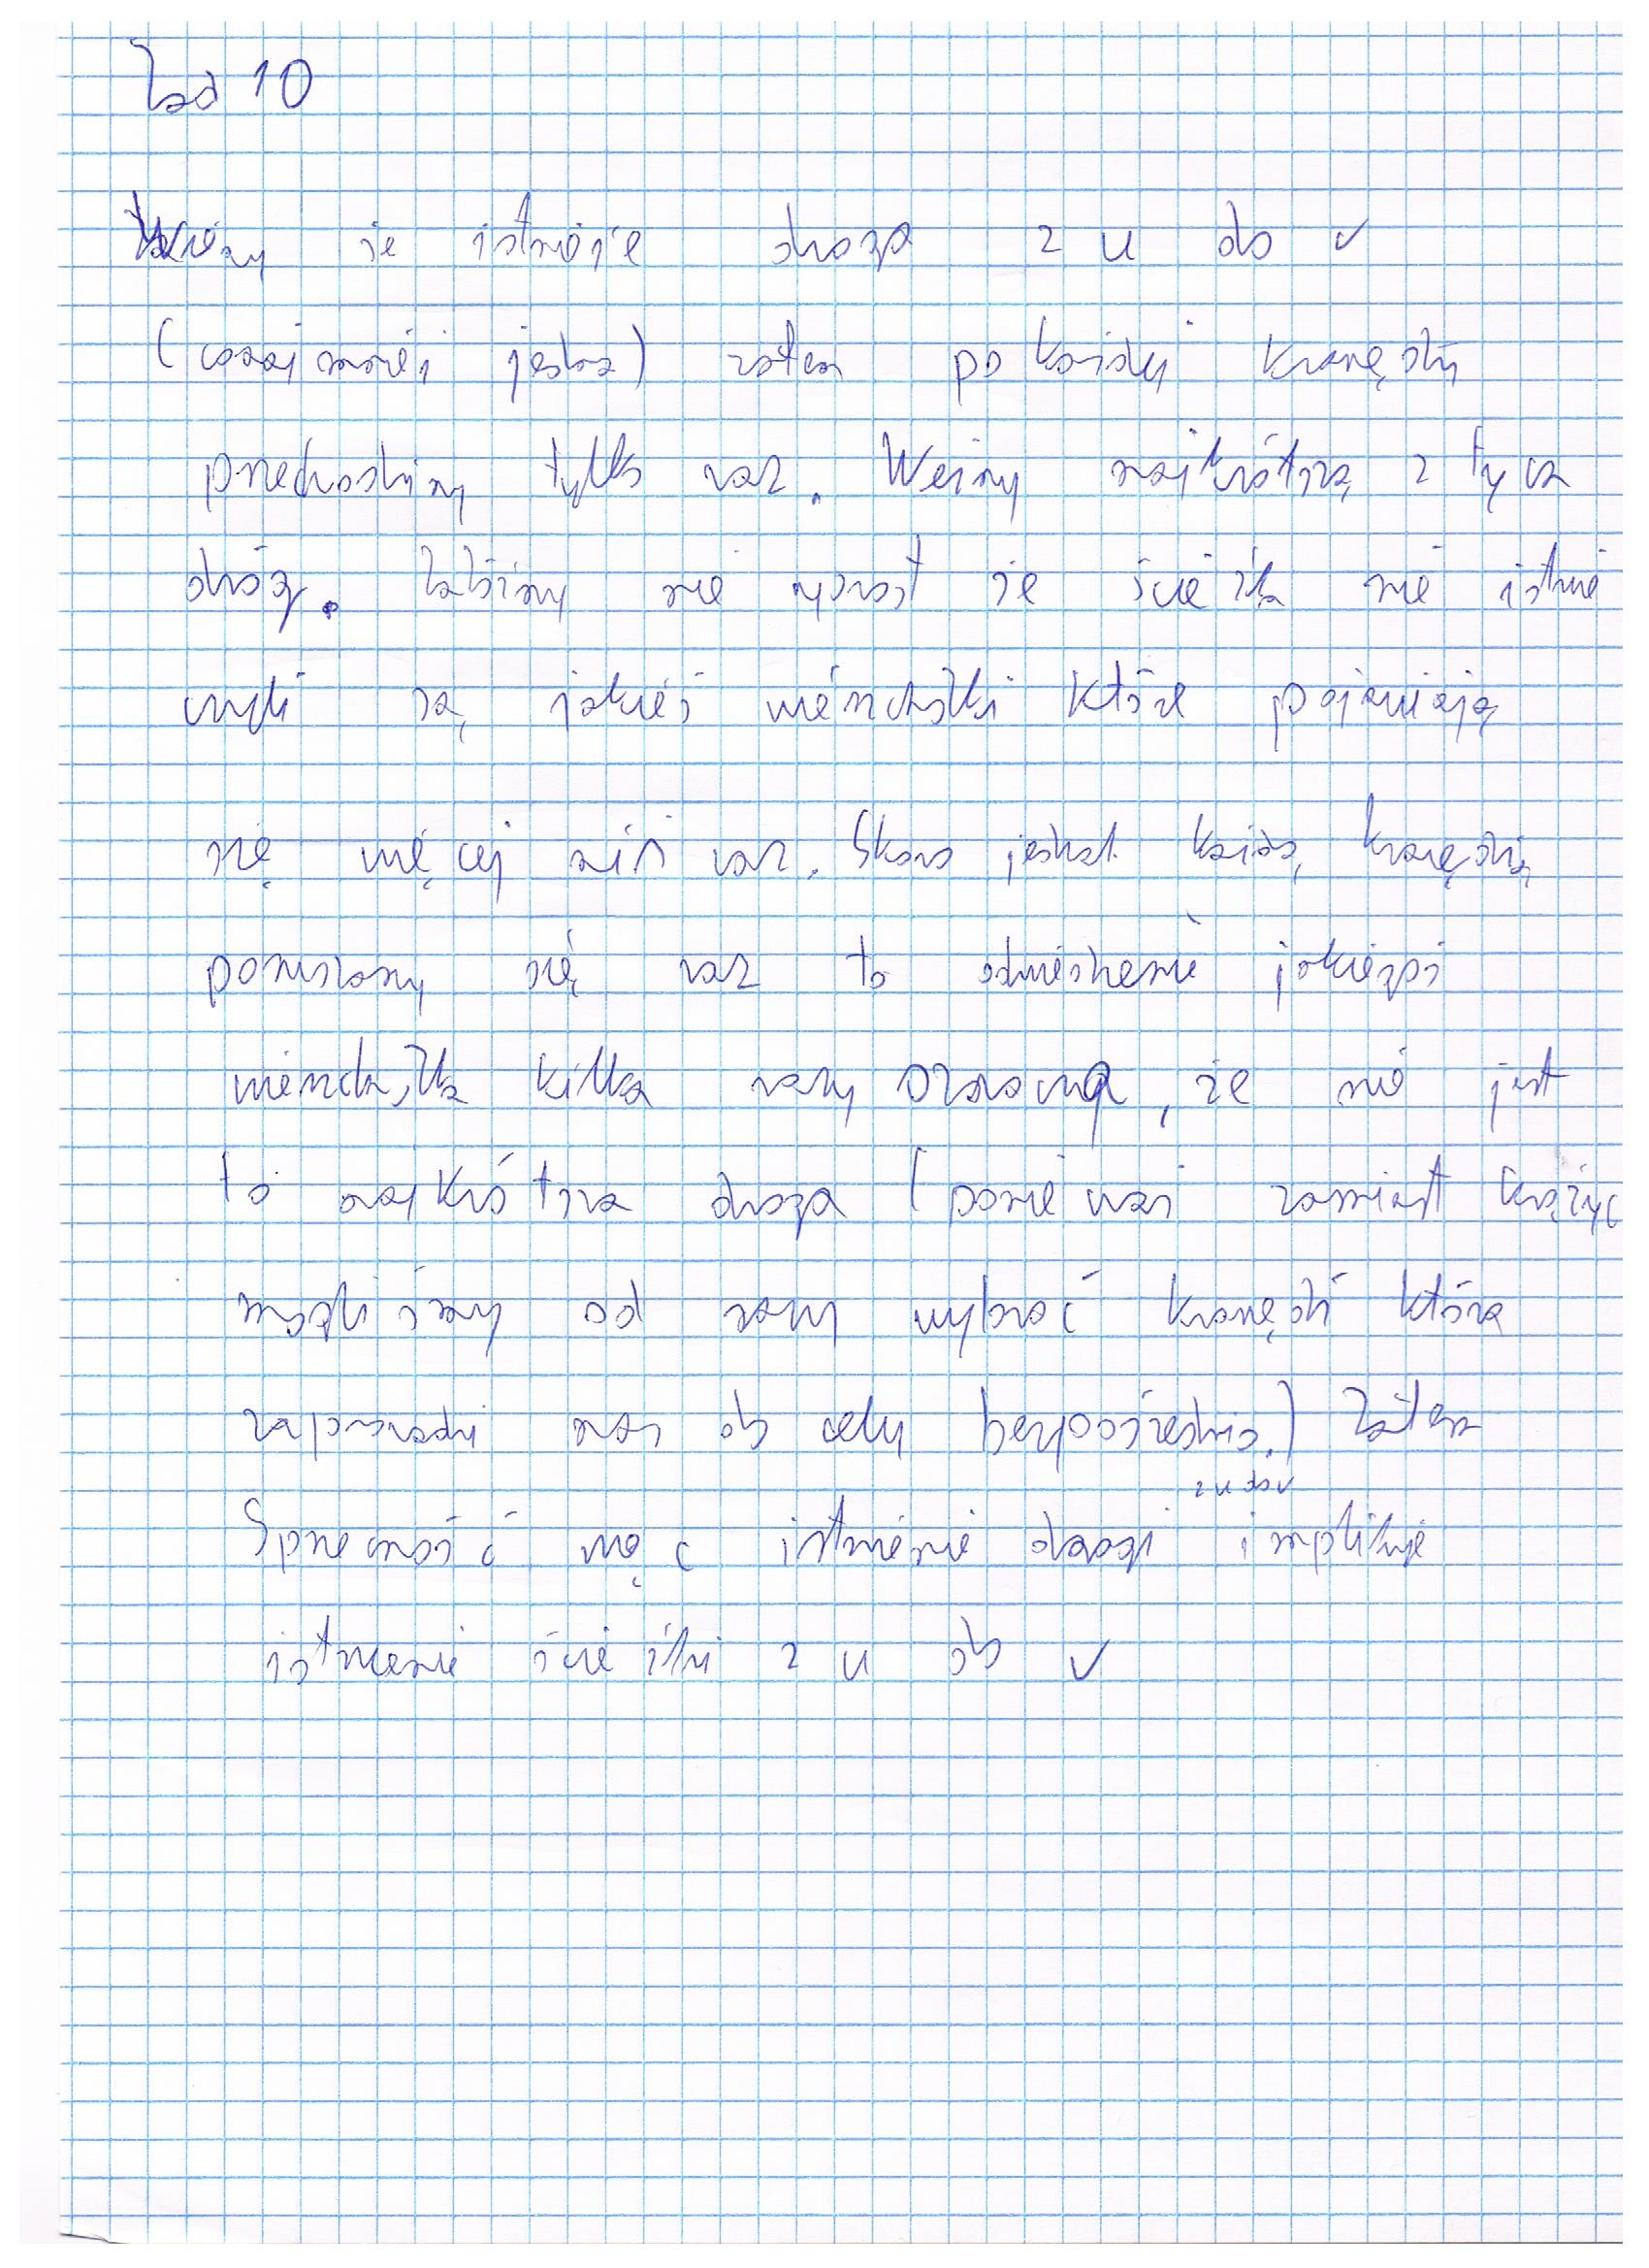 Zad 10
Wiemy że istnieje droga z u do v
(conajmniej jedna) zatem po każdej krawędzi
przechodzimy tylko raz. Weźmy najkrótszą z tych
dróg. Załóżmy nie wprost że ścieżka nie istnie
czyli są jakieś wierzchołki które pojawiają
się więcej niż raz. Skoro jednak każdą krawędzią
poruszamy się raz to odwiedzenie jakiegoś
wierzchołka kilka razy oznacza, że nie jest
to najkrótsza droga (ponieważ zamiast krążyć
mogliśmy od razu wybrać krawędź która
zaprowadzi nas do celu bezpośrednio.) Zatem
z u do v
Sprzeczność więc istnienie drogi implikuje
istnienie ścieżki z u do v